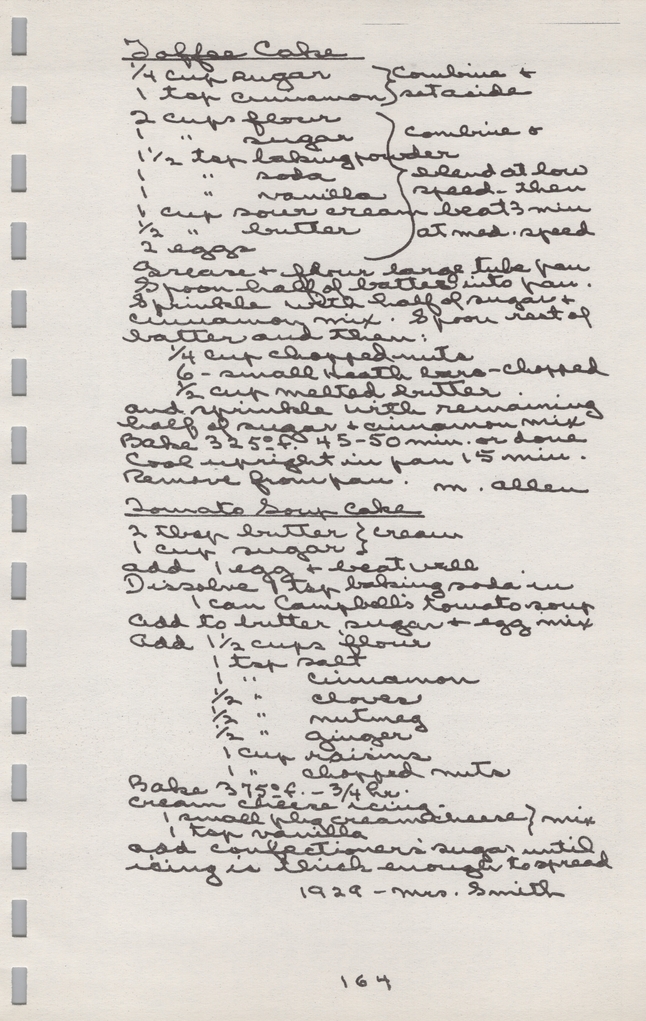 Toffee Cake
1/4 cup sugar } combine +
1 tsp cinnamon } set aside
2 cups flour
1 " sugar } combine +
1 1/2 tsp baking powder
1 " soda } blend at low
1 " vanilla speed - then
1 cup sour cream beat 3 min
1/2 " butter at med. speed
2 eggs
Grease + flour large tube pan
Spoon half of batter into pan.
Sprinkle with half of sugar +
cinnamon mix. Spoon rest of
batter and then:
1/4 cup chopped nuts
6 - small Heath bars - chopped
1/2 cup melted butter
and sprinkle with remaining
half of sugar + cinnamon mix
Bake 325° f. 45-50 min. or done
Cool upright in pan 15 min.
Remove from pan. M. Allen
Tomato Soup Cake
2 tbsp butter } cream
1 cup sugar }
add 1 egg + beat well
Dissolve 1 tsp baking soda in
1 can Campbell's tomato soup
Add to butter sugar + egg mix
Add 1 1/2 cups flour
1 tsp salt
1 " cinnamon
1/2 " cloves
1/2 " nutmeg
1/2 " ginger
1 cup raisins
1 " chopped nuts
Bake 375° f. - 3/4 hr.
cream cheese icing.
1 small pkg cream cheese } mix
1 tsp vanilla
add confectioner's sugar until
icing is thick enough to spread
1929 - Mrs. Smith
164